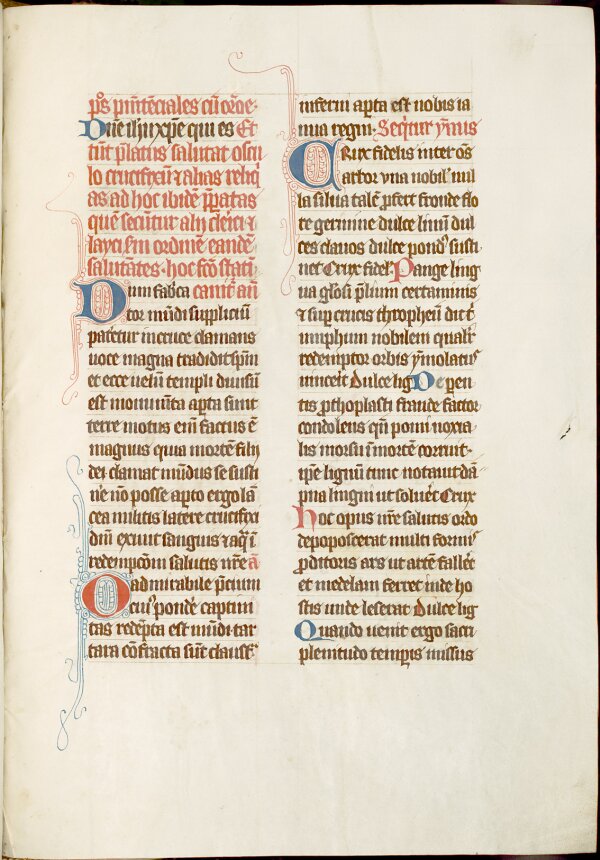 p̄os pnīten̄ciales cū or̄one·
Dn̄e ih̄u xp̄e qui es Et
tūt p̄latus salutat oscu
lo crucifixū ⁊ alias reliq
as ad hoc ibidē p̄paratas
quē secūtur alij cleīci ⁊
layci s̄m ordinē eandē
salutātes· hoc fc̄o statī
Dum fab̄ca canit̄ an̄
tor mūdi suppliciū
pateretur in cruce clamans
uoce magna tradidit sp̄m
et ecce uelū templi diuisū
est monumta aperta sunt
terre motus em̄ factus ē
magnus quia mortē filij
dei clamat mūdus se susti
ne nō posse aperto ergo lā
cea militis latere crucifixi
dn̄i exiuit sanguis ⁊ aq̄ ī
redempcōm salutis nr̄e a
O admirabile p̄cium
cui⁹ pondē captiui
tas redēpta est mūdi tar
tara cōfracta sūt claustr̄
inferni ap̄ta est nobis ia
nua regni· Seq̄tur ym̄us
Crux fidelis inter om̄s
arbor vna nobil̄ nul
la silua talē p̄fert fronde flo
re germine dulce lignū dul
ces clauos dulce pond⁹ susti
net Crux fidel̄ Pange ling
ua gl̄osi p̄lium certaminis
⁊ sup̄ crucis throphēū dic t̄
umphum nobilem qualit̄
redemptor orbis ymolatus
uincerit Dulce lig De paren
tis prothoplasti fraude factor
condolens qn̄ pomi noxia
lis morsu ī mortē corruit·
ip̄e lignū tunc notauit dā
pna lingni ut soluēt Crux
hoc opus nr̄e salutis ordo
depoposcerat multi formis
p̄ditoris ars ut artē fallēt
et medelam ferret inde ho
stis unde leserat Dulce lig
Quando uenit ergo sacri
plenitudo temp̄is missus